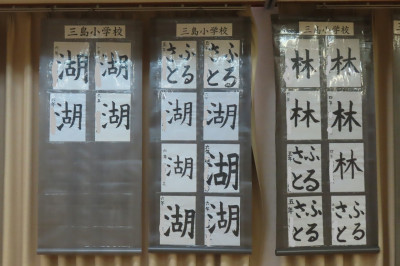 三島小学校
湖
湖
湖
湖
三島小学校
ふる
さと
ふる
さと
湖
湖
湖
湖
湖
湖
三島小学校
林
林
林
林
林
ふる
さと
ふる
さと
ふる
さと